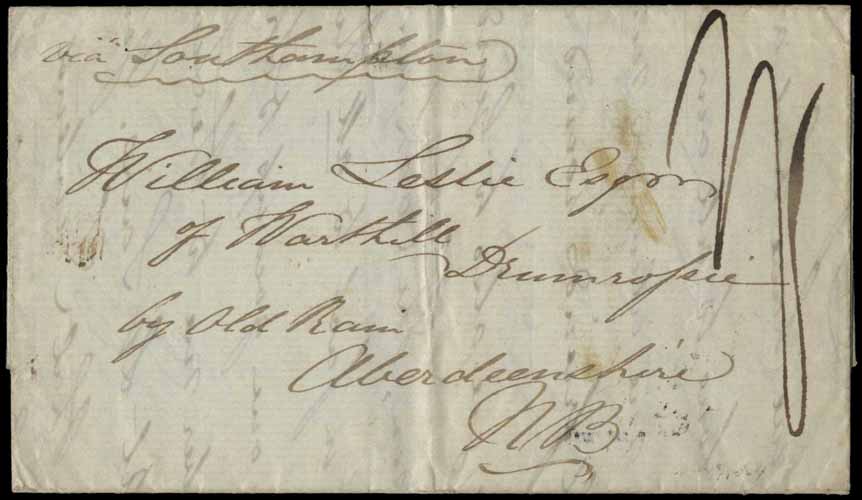 via Southampton
William Leslie Esqr
of Warthill
Drumrossie
by Old Rain
Aberdeenshire
NB